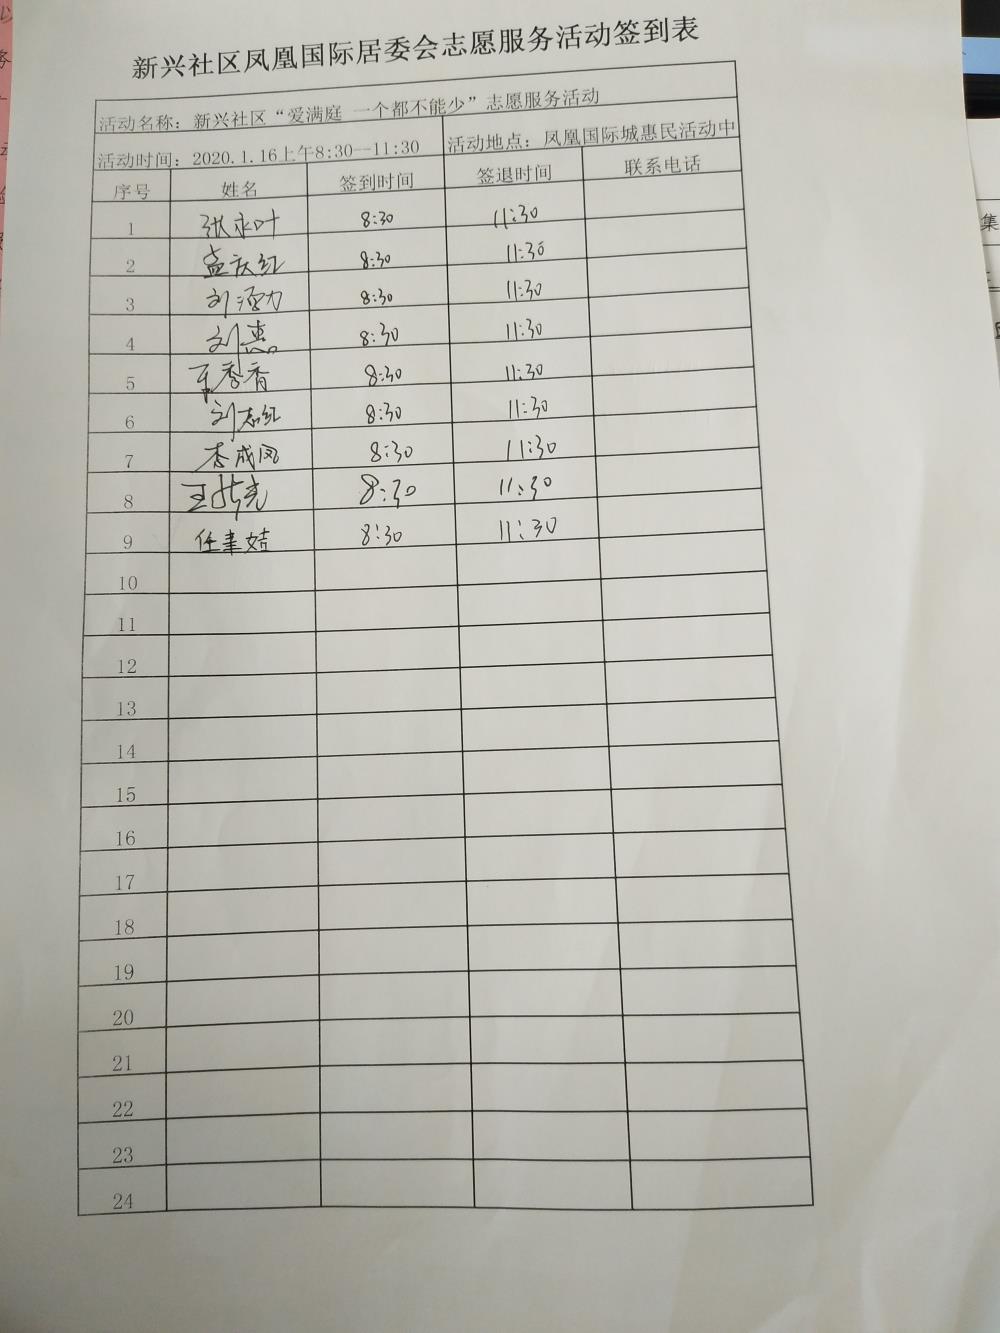 新兴社区凤凰国际居委会志愿服务活动签到表
活动名称：新兴社区“爱满庭 一个都不能少”志愿服务活动
活动时间：2020.1.16上午8:30--11:30 活动地点：凤凰国际城惠民活动中
序号 姓名 签到时间 签退时间 联系电话
1 张永叶 8:30 11:30
2 孟庆红 8:30 11:30
3 刘 力 8:30 11:30
4 刘惠 8:30 11:30
5 王秀香 8:30 11:30
6 刘志红 8:30 11:30
7 李成凤 8:30 11:30
8 王 8:30 11:30
9 任 8:30 11:30
10
11
12
13
14
15
16
17
18
19
20
21
22
23
24
集